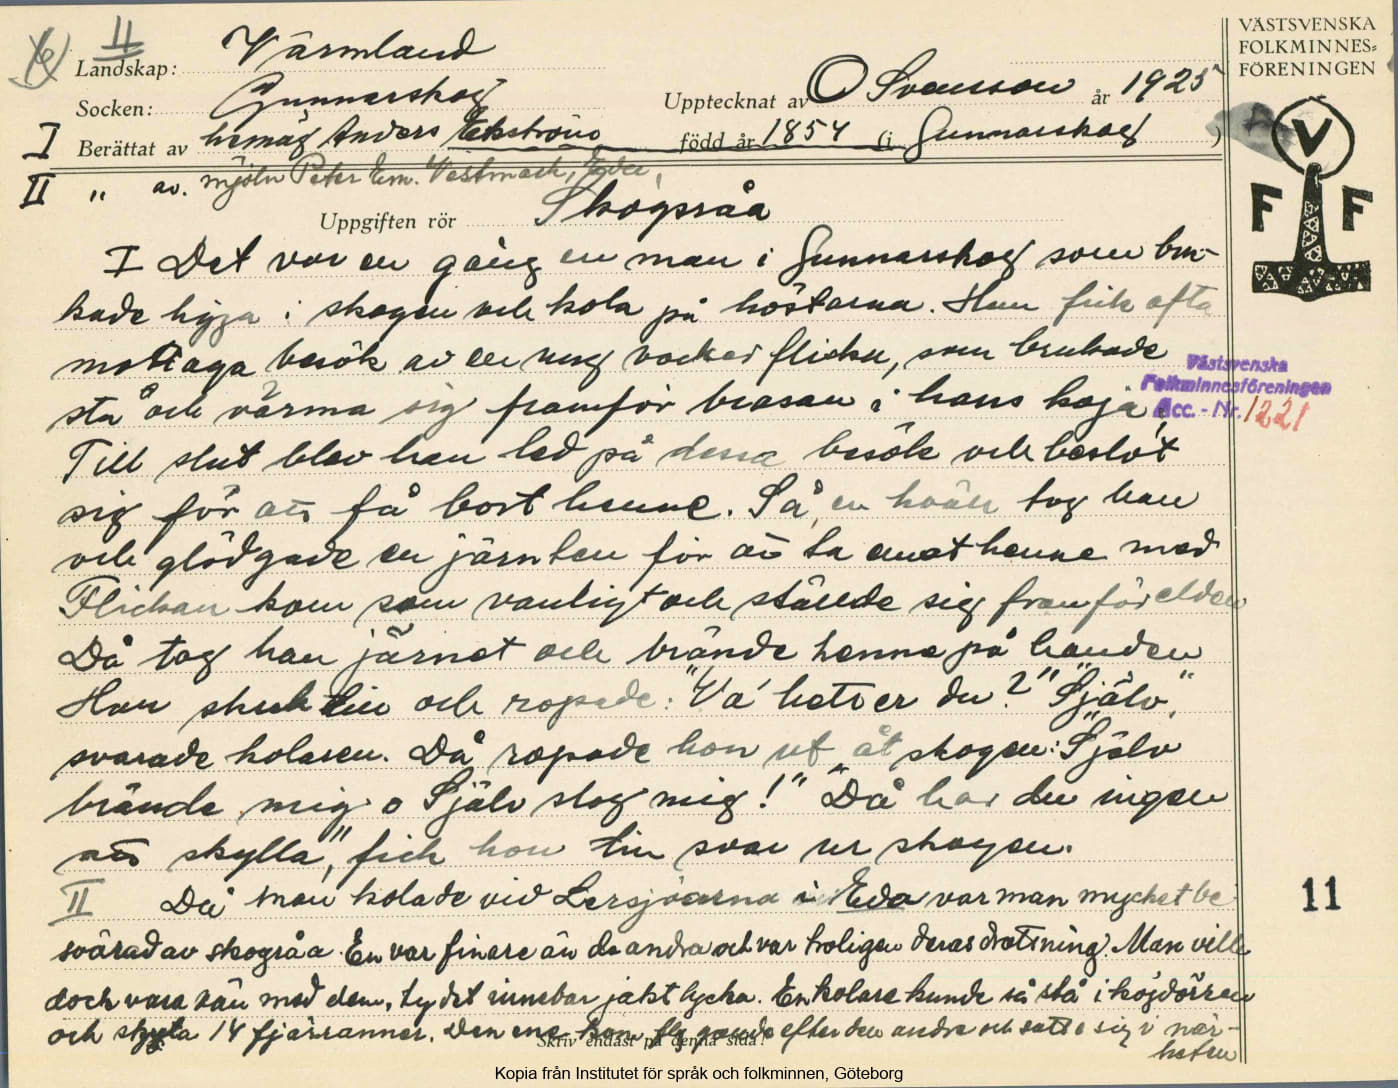 11
Landskap: Värmland
Socken: Gunnarskog
Upptecknat av O Svensson år 1925
I Berättat av hemäg Anders Ekström född år 1854 (i Gunnarskog )
II " av. mjöln Peter Em. Västmark, Eda,
Uppgiften rör Skogsråa
VÄSTSVENSKA
FOLKMINNES=
FÖRENINGEN
V
F F
Västsvenska
Folkminnesföreningen
Acc. - Nr. 1221
I Det var en gång en man i Gunnarskog som bru-
kade ligga i skogen och kola på höstarna. Han fick ofta
mottaga besök av en ung vacker flicka, som brukade
stå och värma sig framför brasan i hans koja.
Till slut blev han led på dessa besök och beslöt
sig för att få bort henne. Så, en kväll tog han
och glödgade en järnten för att ta emot henne med
Flickan kom som vanligt och ställde sig framför elden
Då tog han järnet och brände henne på handen
Hon skrek till och ropade: "Va' heter du?" "Själv",
svarade kolaren. Då ropade hon ut åt skogen: "Själv
brände mig o Själv slog mig!" "Då har du ingen
att skylla", fick hon till svar ur skogen.
II Då man kolade vid Lersjöarna i Eda var man mycket be-
svärad av skogråa. En var finare än de andra och var troligen deras drottning. Man ville
doch vara vän med dem, ty det innebar jakt lycka. En kolare kunde så stå i kojdörren
och skjuta 14 fjärranner. Den ene kom flygande efter den andre och satte sig i när-
heten
Skriv endast på denna sida!
11
Kopia från Institutet för språk och folkminnen, Göteborg